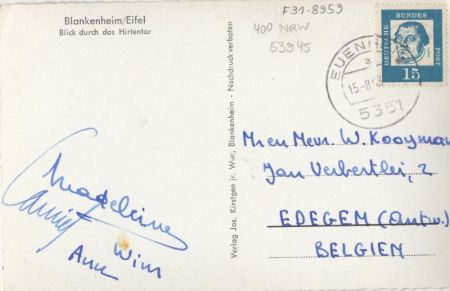 Blankenheim/Eifel
Blick durch das Hirtentor
F31.8959
400 NRW
53945
DEUTSCHE BUNDESPOST
15
15.-8.
5351
Verlag Jos. Kirstgen jr. Wwr, Blankenheim - Nachdruck verboten
W. Kooyman
Jan Verbertlei, 2
EDEGEM (Antw.)
BELGIEN
Madeleine
Wim
Ann